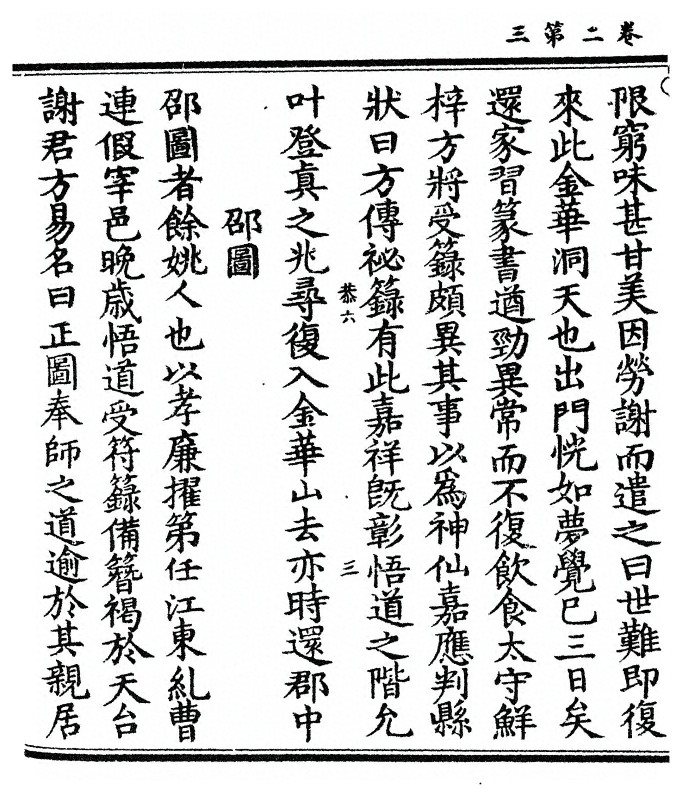 卷二第三
限窮味甚甘美因勞謝而遣之曰世難即復
來此金華洞天也出門恍如夢覺已三日矣
還家習篆書遒勁異常而不復飲食太守鮮
梓方將受籙頗異其事以為神仙嘉應判縣
狀曰方傳祕籙有此嘉祥旣彰悟道之階允
恭六
三
叶登真之兆尋復入金華山去亦時還郡中
邵圖
邵圖者餘姚人也以孝廉擢第任江東糺曹
連假宰邑晚歲悟道受符籙備簪褐於天台
謝君方易名曰正圖奉師之道逾於其親居